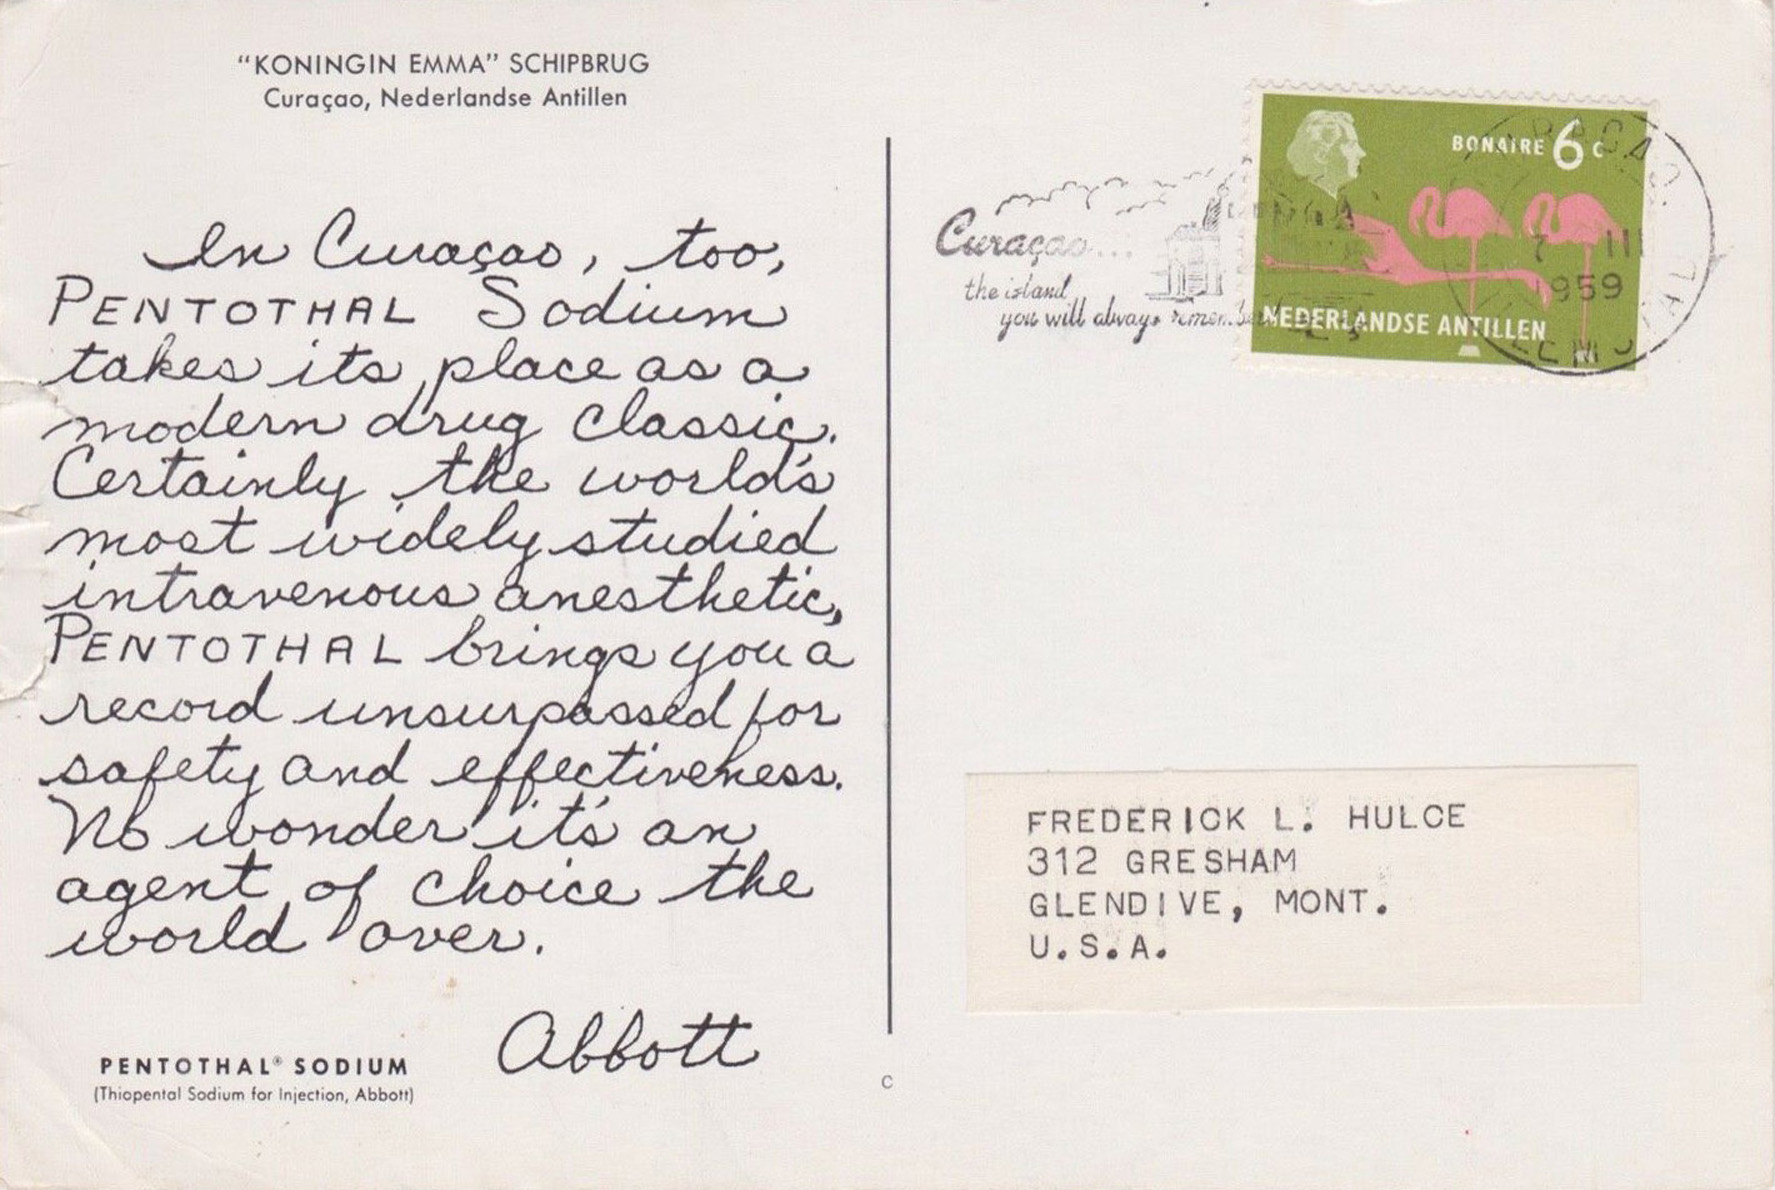 "KONINGIN EMMA" SCHIPBRUG
Curaçao, Nederlandse Antillen
In Curaçao, too,
PENTOTHAL Sodium
takes its place as a
modern drug classic.
Certainly the world's
most widely studied
intravenous anesthetic,
PENTOTHAL brings you a
record unsurpassed for
safety and effectiveness.
No wonder it's an
agent of choice the
world over.
Abbott
PENTOTHAL® SODIUM
(Thiopental Sodium for Injection, Abbott)
C
Curaçao...
the island
you will always remember
BONAIRE 6 c
NEDERLANDSE ANTILLEN
7 III
1959
FREDERICK L. HULCE
312 GRESHAM
GLENDIVE, MONT.
U.S.A.